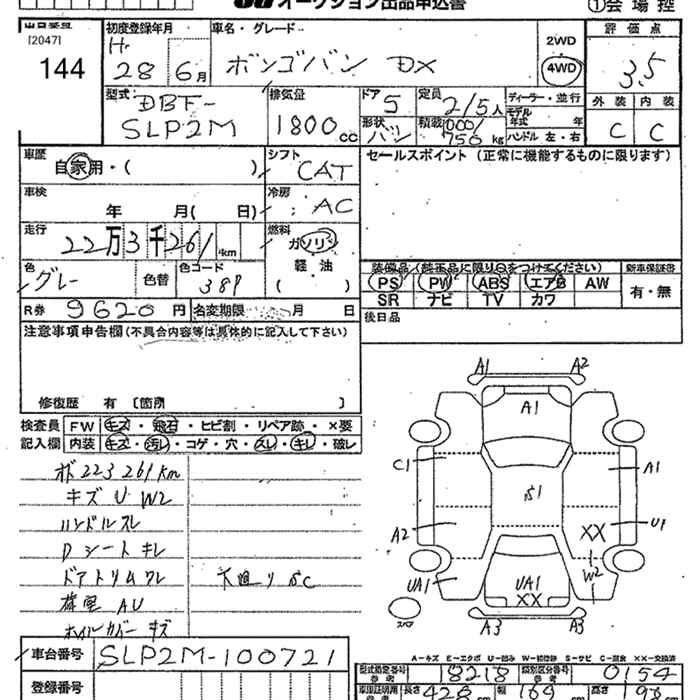 オークション出品申込書
①会場控
出品番号
[2047]
144
初度登録年月
H
28年 6月
車名・グレード
ボンゴバン DX
2WD
4WD
評価点
3.5
外装 内装
C C
型式
DBF-
SLP2M
排気量
1800cc
ドア
5
形状
バン
定員
2/5人
積載
1000/
750kg
ディーラー・並行
モデル年式 年
ハンドル 左・右
車歴
自家用・( )
シフト
CAT
セールスポイント(正常に機能するものに限ります)
車検
年 月( 日)
冷房
AC
走行
22万3千261km
燃料
ガソリン
軽油
( )
色
グレー
色替
色コード
38P
装備品(装正品に限り○をつけてください)
新車保証書
PS PW ABS エアB AW
SR ナビ TV カワ
有・無
後日品
R券 9620円
名変期限 月 日
注意事項申告欄(不具合内容等は具体的に記入して下さい)
修復歴 有 [箇所 ]
検査員記入欄
FW キズ・飛石・ヒビ割・リペア跡・×要
内装 キズ・汚レ・コゲ・穴・スレ・キレ・破レ
メ223261km
キズ U W2
ハンドルスレ
Dシートキレ
ドアトリムワレ
荷室 AU
ホイルカバーキズ
下廻りSC
A1 A2
A1
C1 A1
S1
A2 XX U1
W2
UA1 UA1
XX
スペア
A3 A3
A-キズ E-エクボ U-凹み W-補修跡 S-サビ C-腐食 XX-交換済
車台番号 SLP2M-100721
登録番号
型式指定番号 参考 18218
類別区分番号 参考 0154
車庫証明用 参考
長さ 428
幅 169
高さ 198